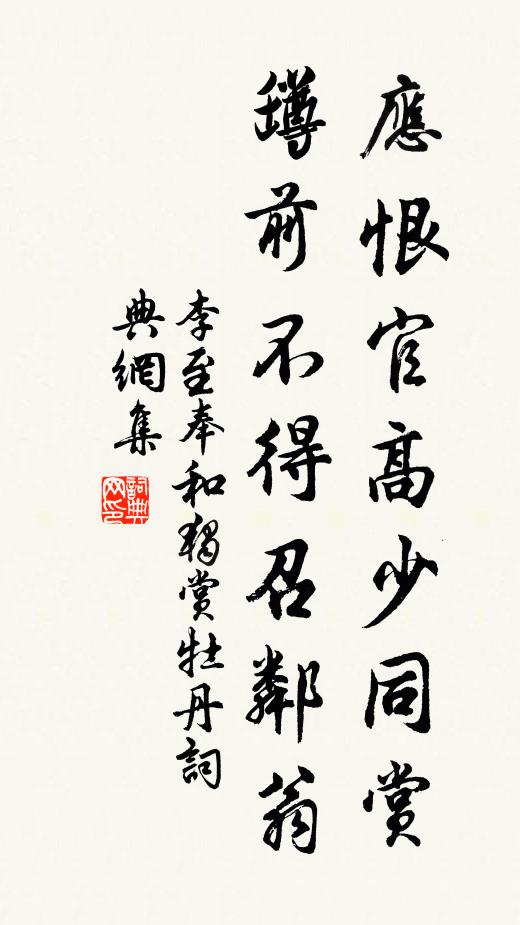 應恨官高少同賞
罇前不得召鄰翁
李至奉和獨賞牡丹詞
典網集
詞典網印